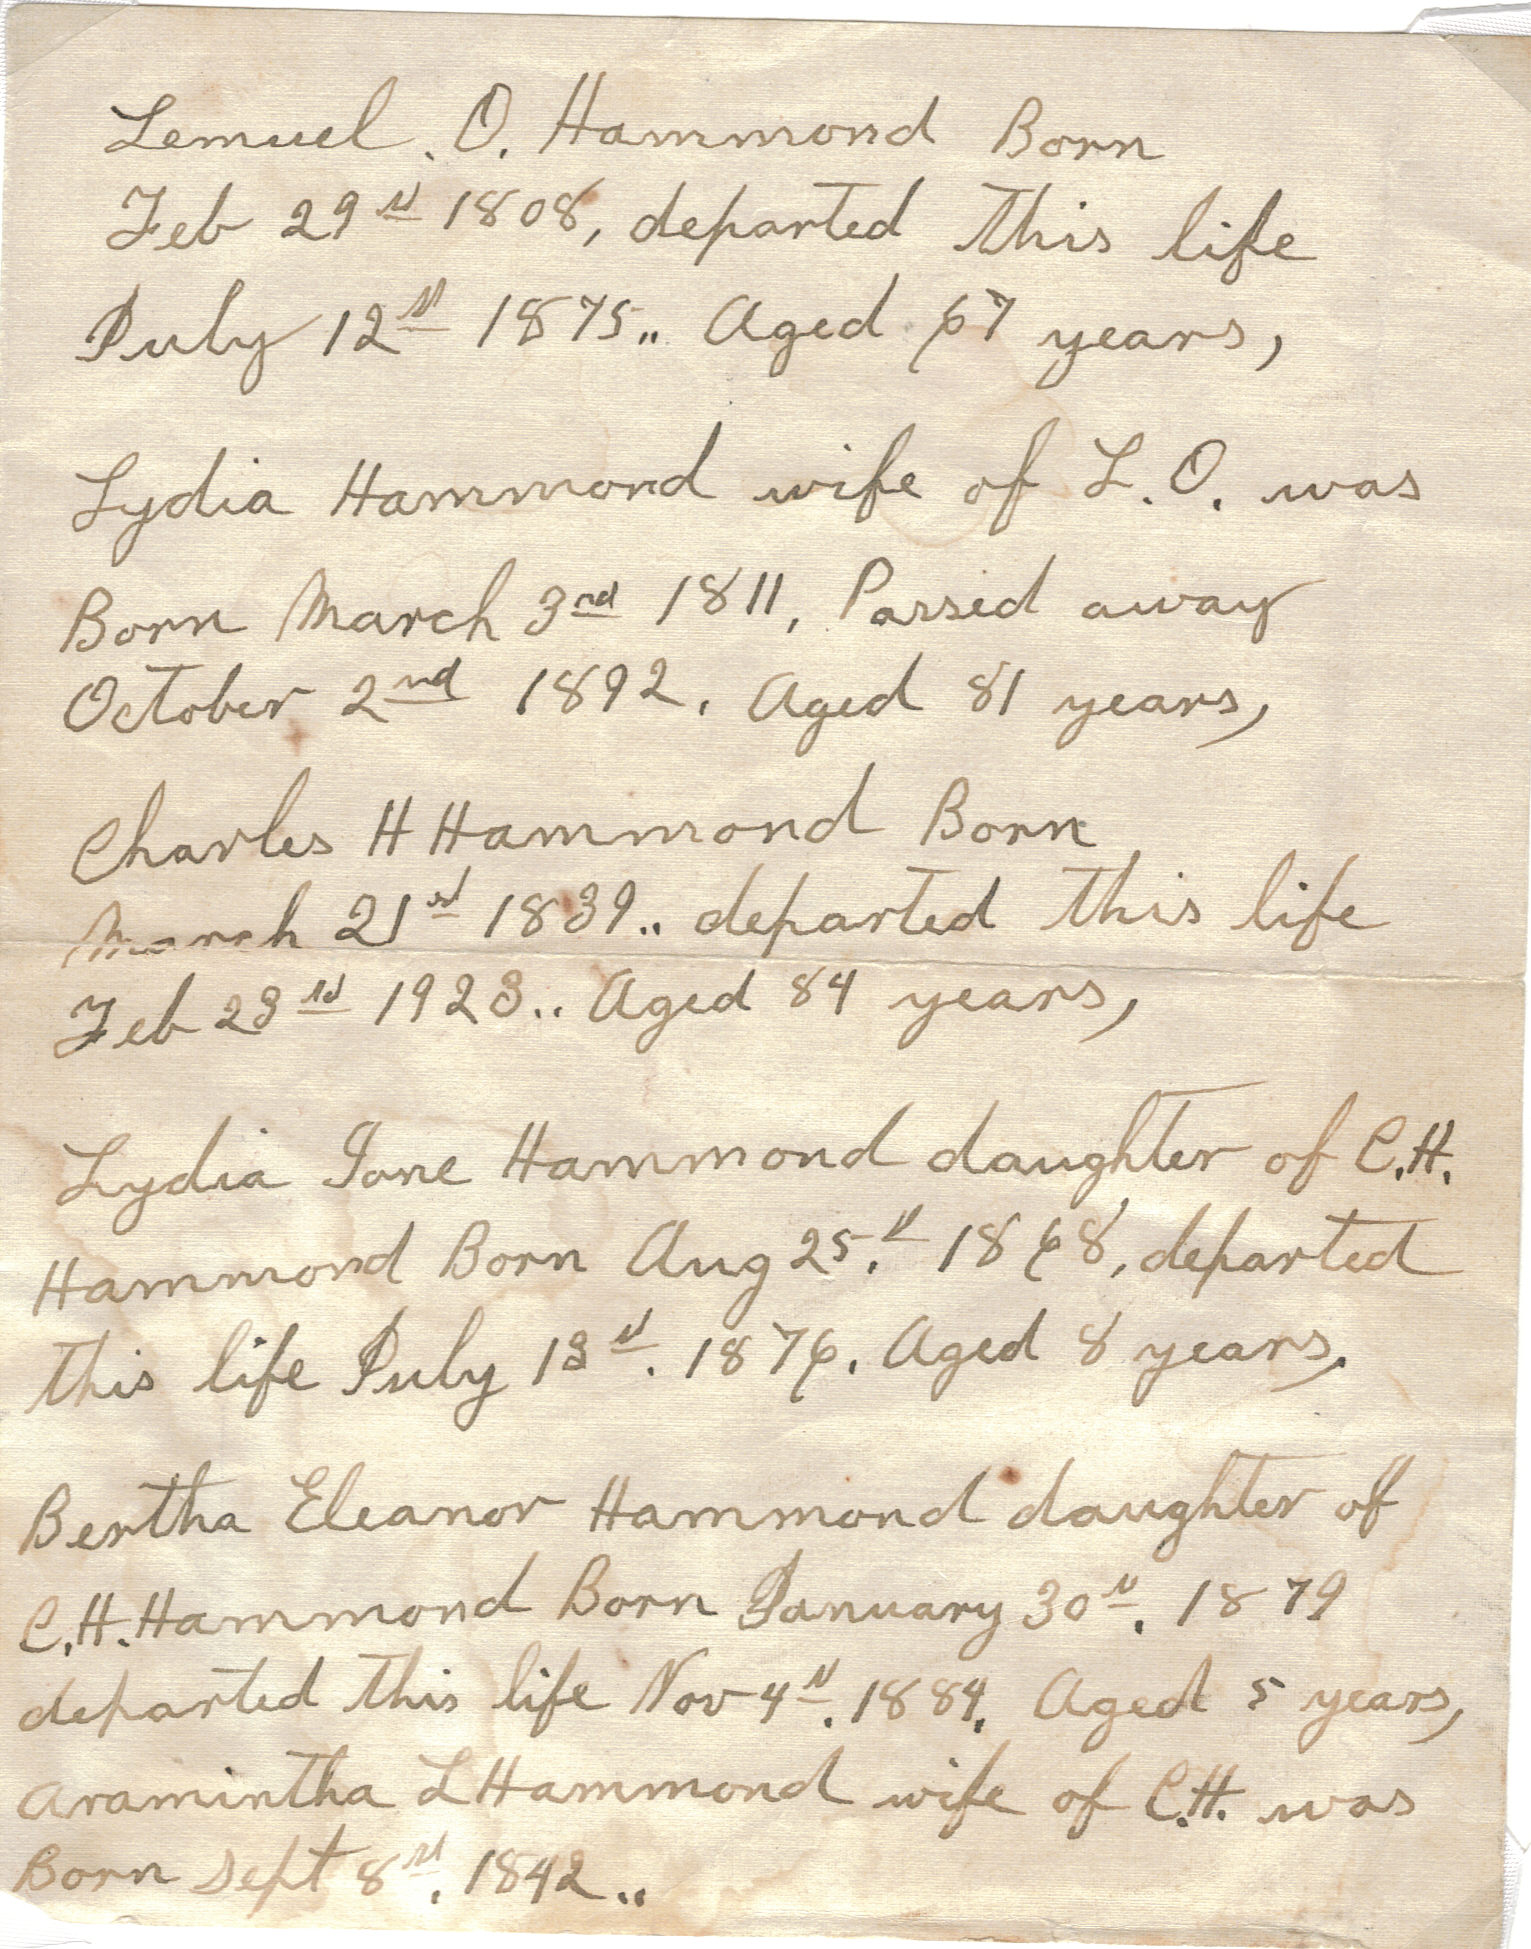 Lemuel. O. Hammond Born
Feb 29st 1808, departed this life
July 12st 1875.. Aged 67 years,
Lydia Hammond wife of L.O. was
Born March 3nd 1811, Passed away
October 2nd 1892. Aged 81 years,
Charles H Hammond Born
March 21st 1839.. departed this life
Feb 23rd 1923.. Aged 84 years,
Lydia Ione Hammond daughter of C.H.
Hammond Born Aug 25.st 1868, departed
this life July 13st. 1876. Aged 8 years,
Bertha Eleanor Hammond daughter of
C.H. Hammond Born January 30st. 1879
departed this life Nov 4st. 1884. Aged 5 years,
Aramintha L Hammond wife of C.H. was
Born Sept 8st. 1842..